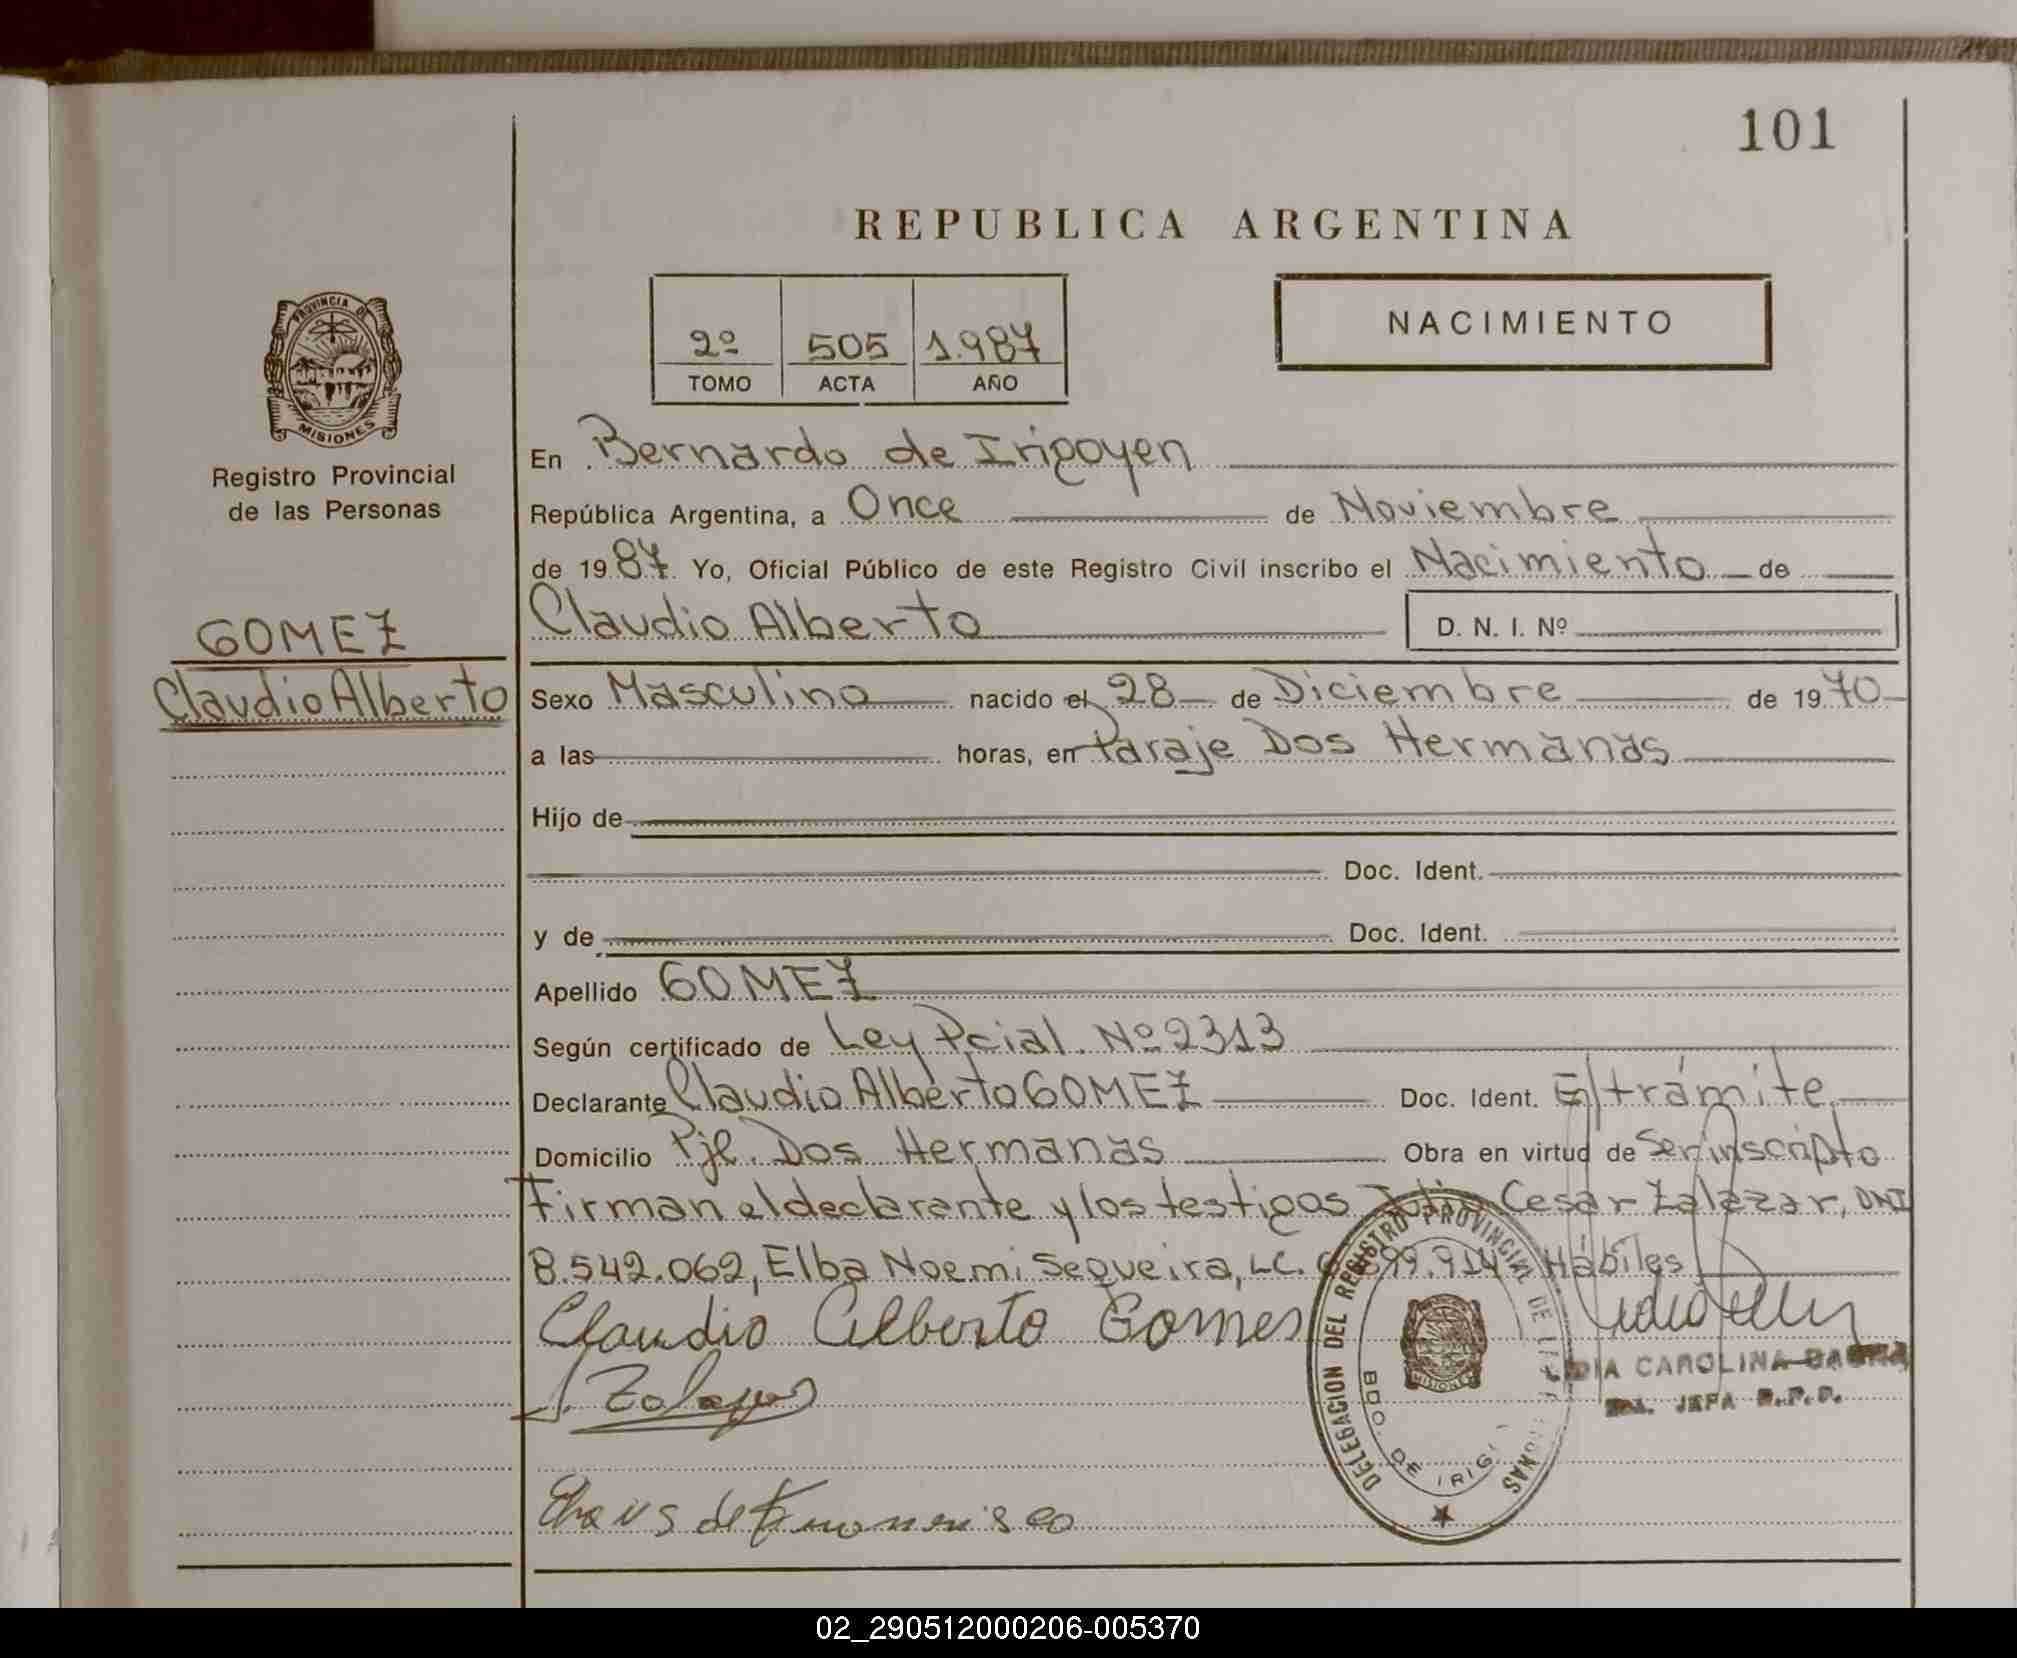 101
REPUBLICA ARGENTINA
2º 505 1.987
TOMO ACTA AÑO
NACIMIENTO
PROVINCIA DE
MISIONES
Registro Provincial
de las Personas
GOMEZ
Claudio Alberto
En Bernardo de Irigoyen
República Argentina, a Once de Noviembre
de 1987. Yo, Oficial Público de este Registro Civil inscribo el Nacimiento de
Claudio Alberto D. N. I. Nº
Sexo Masculino nacido el 28 de Diciembre de 1970
a las horas, en Paraje Dos Hermanas
Hijo de
Doc. Ident.
y de Doc. Ident.
Apellido GOMEZ
Según certificado de Ley Pcial. Nº 2313
Declarante Claudio Alberto GOMEZ Doc. Ident. E/trámite
Domicilio Pje. Dos Hermanas Obra en virtud de Ser inscripto
Firman el declarante y los testigos Julio Cesar Zalazar, DNI
8.542.062, Elba Noemi Sequeira, LC. 699.914 Hábiles
Claudio Alberto Gomes
DELEGACION DEL REGISTRO PROVINCIAL DE
BDO. DE IRIG
MISIONES
CAROLINA
JEFA R.P.P.
02_290512000206-005370